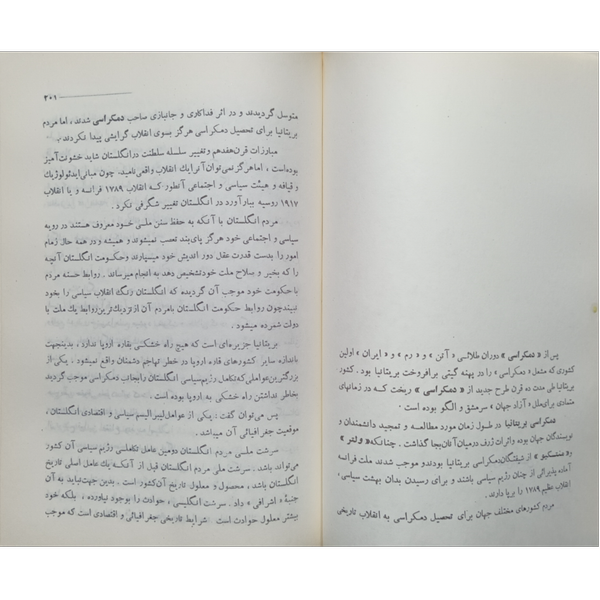 پس از « دمکراسی » دوران طلائی « آتن » و « رم » و « ایران » اولین
کشوری که مشعل « دمکراسی » را در پهنه گیتی برافروخت بریتانیا بود . کشور
بریتانیا طی مدت ده قرن طرح جدید از « دمکراسی » ریخت که در زمانهای
متمادی برای ملل « آزاد جهان » سرمشق و الگو بوده است .
دمکراسی بریتانیا در طول زمان مورد مطالعه و تمجید دانشمندان و
نویسندگان جهان بوده واثرات ژرف درمیان آنان بجا گذاشت . چنانکه « ولتر »
« منتسکیو » از شیفتگان دمکراسی بریتانیا بودند و موجب شدند ملت فرانسه
آماده پذیرائی از چنان رژیم سیاسی باشند و برای رسیدن بدان بهیئت سیاسی،
انقلاب عظیم ۱۷۸۹ را برپا دارند.
مردم کشورهای مختلف جهان برای تحصیل دمکراسی به انقلاب تاریخی
۲۰۱
متوسل گردیدند و در اثر فداکاری و جانبازی صاحب دمکراسی شدند ، اما مردم
بریتانیا برای تحصیل دمکراسی هرگز بسوی انقلاب گرایشی پیدا نکردند .
مبارزات قرن هفدهم وتغییر سلسله سلطنت درانگلستان شاید خشونت آمیز
بوده است ، اما هرگز نمی‌توان آنرا یك انقلاب واقعی نامید. چون مبانی ایدئولوژیك
و قیافه و هیئت سیاسی و اجتماعی آنطور که انقلاب ۱۷۸۹ فرانسه و یا انقلاب
۱۹۱۷ روسیه ببارآورد در انگلستان تغییر شگرفی نکرد .
مردم انگلستان با آنکه به حفظ سنن ملی خود معروف هستند در رویه
سیاسی و اجتماعی خود هرگز پای‌بند تعصب نمیشوند و همیشه و در همه حال زمام
امور را بدست قدرت عقل دور اندیش خود میسپارند وحکومت انگلستان آنچه
را که بخیر و بصلاح ملت خود تشخیص دهد به انجام میرساند . روابط حسنه مردم
با حکومت خود موجب آن گردیده که انگلستان رنگ انقلاب سیاسی را بخود
نبیند چون روابط حکومت انگلستان بامردم آن از نزدیك ترین روابط یك ملت با
دولت شمرده میشود .
بریتانیا جزیره‌ای است که هیچ راه خشکی بقاره اروپا ندارد، بدینجهت
باندازه سایر کشورهای قاره اروپا در خطر تهاجم دشمنان واقع نمیشود . یکی از
بزرگترین عواملی که تکامل رژیم سیاسی انگلستان را بجانب دمکراسی موجب گردید
بخاطر نداشتن راه خشکی به اروپا بوده است .
پس می‌توان گفت : یکی از عوامل لیبرالیسم سیاسی و اقتصادی انگلستان ،
موقعیت جغرافیائی آن میباشد .
سرشت ملی مردم انگلستان دومین عامل تکاملی رژیم سیاسی آن کشور
می‌تواند باشد . سرشت ملی مردم انگلستان قبل از آنکه یك عامل اصلی تاریخ
انگلستان باشد ، محصول و معلول تاریخ آن کشور است . بدین جهت نباید به آن
جنبهٔ « اشرافی » داد . سرشت انگلیسی ، حوادث را بوجود نیاورده ، بلکه خود
بیشتر معلول حوادث است . شرایط تاریخی جغرافیائی و اقتصادی است که موجب